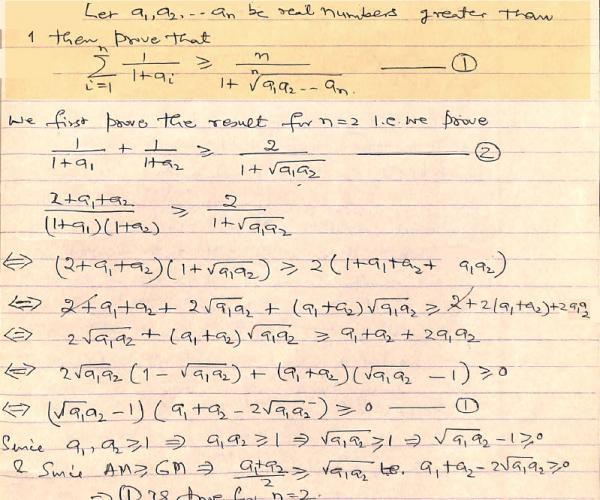 Let a₁, a₂, ... aₙ be real numbers greater than
1 then prove that
∑ᵢ₌₁ⁿ 1/(1+aᵢ) ≥ n/(1+ⁿ√(a₁a₂...aₙ)) —— ①
We first prove the result for n=2 i.e. we prove
1/(1+a₁) + 1/(1+a₂) ≥ 2/(1+√(a₁a₂)) —— ②
(2+a₁+a₂)/((1+a₁)(1+a₂)) ≥ 2/(1+√(a₁a₂))
⇔ (2+a₁+a₂)(1+√(a₁a₂)) ≥ 2(1+a₁+a₂+ a₁a₂)
⇔ 2+a₁+a₂+2√(a₁a₂) + (a₁+a₂)√(a₁a₂) ≥ 2+2(a₁+a₂)+2a₁a₂
⇔ 2√(a₁a₂) + (a₁+a₂)√(a₁a₂) ≥ a₁+a₂+2a₁a₂
⇔ 2√(a₁a₂)(1-√(a₁a₂)) + (a₁+a₂)(√(a₁a₂) -1) ≥ 0
⇔ (√(a₁a₂) -1)(a₁+a₂-2√(a₁a₂)) ≥ 0 —— ①
Since a₁, a₂ ≥ 1 ⇒ a₁a₂ ≥ 1 ⇒ √(a₁a₂) ≥ 1 ⇒ √(a₁a₂) -1 ≥ 0
& Since AM ≥ GM ⇒ (a₁+a₂)/2 ≥ √(a₁a₂) i.e. a₁+a₂-2√(a₁a₂) ≥ 0
⇒ ① is true for n=2.